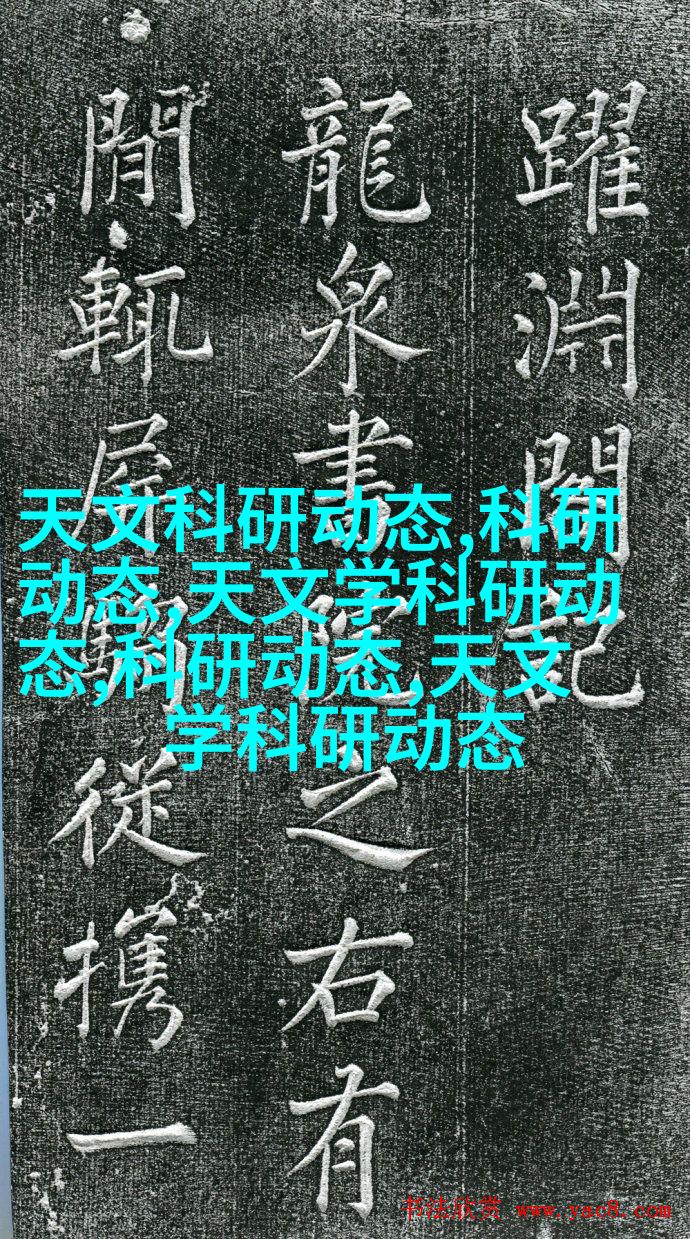 躍淵閣記
龍泉書院之右有
閒輒屏騶從攜一
天文科研动态,科研
动态,天文学科研动
态,科研动态,天文
学科研动态
书法欣赏 www.yac8.com